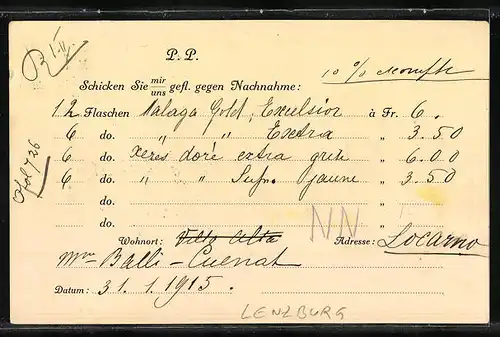 B 1. II.
P. P.
10 % escompte
Schicken Sie mir/uns gefl. gegen Nachnahme:
12 Flaschen Malaga Gold, Excelsior à Fr. 6.
6 do. " " Extra " 3.50
6 do. Xeres doré extra " 6.00
6 do. " " Supr. jaune " 3.50
do. "
do. "
NN
Wohnort: Villa Alta Adresse: Locarno
Mme Balli-Cuenat
Datum: 31. 1. 1915.
LENZBURG